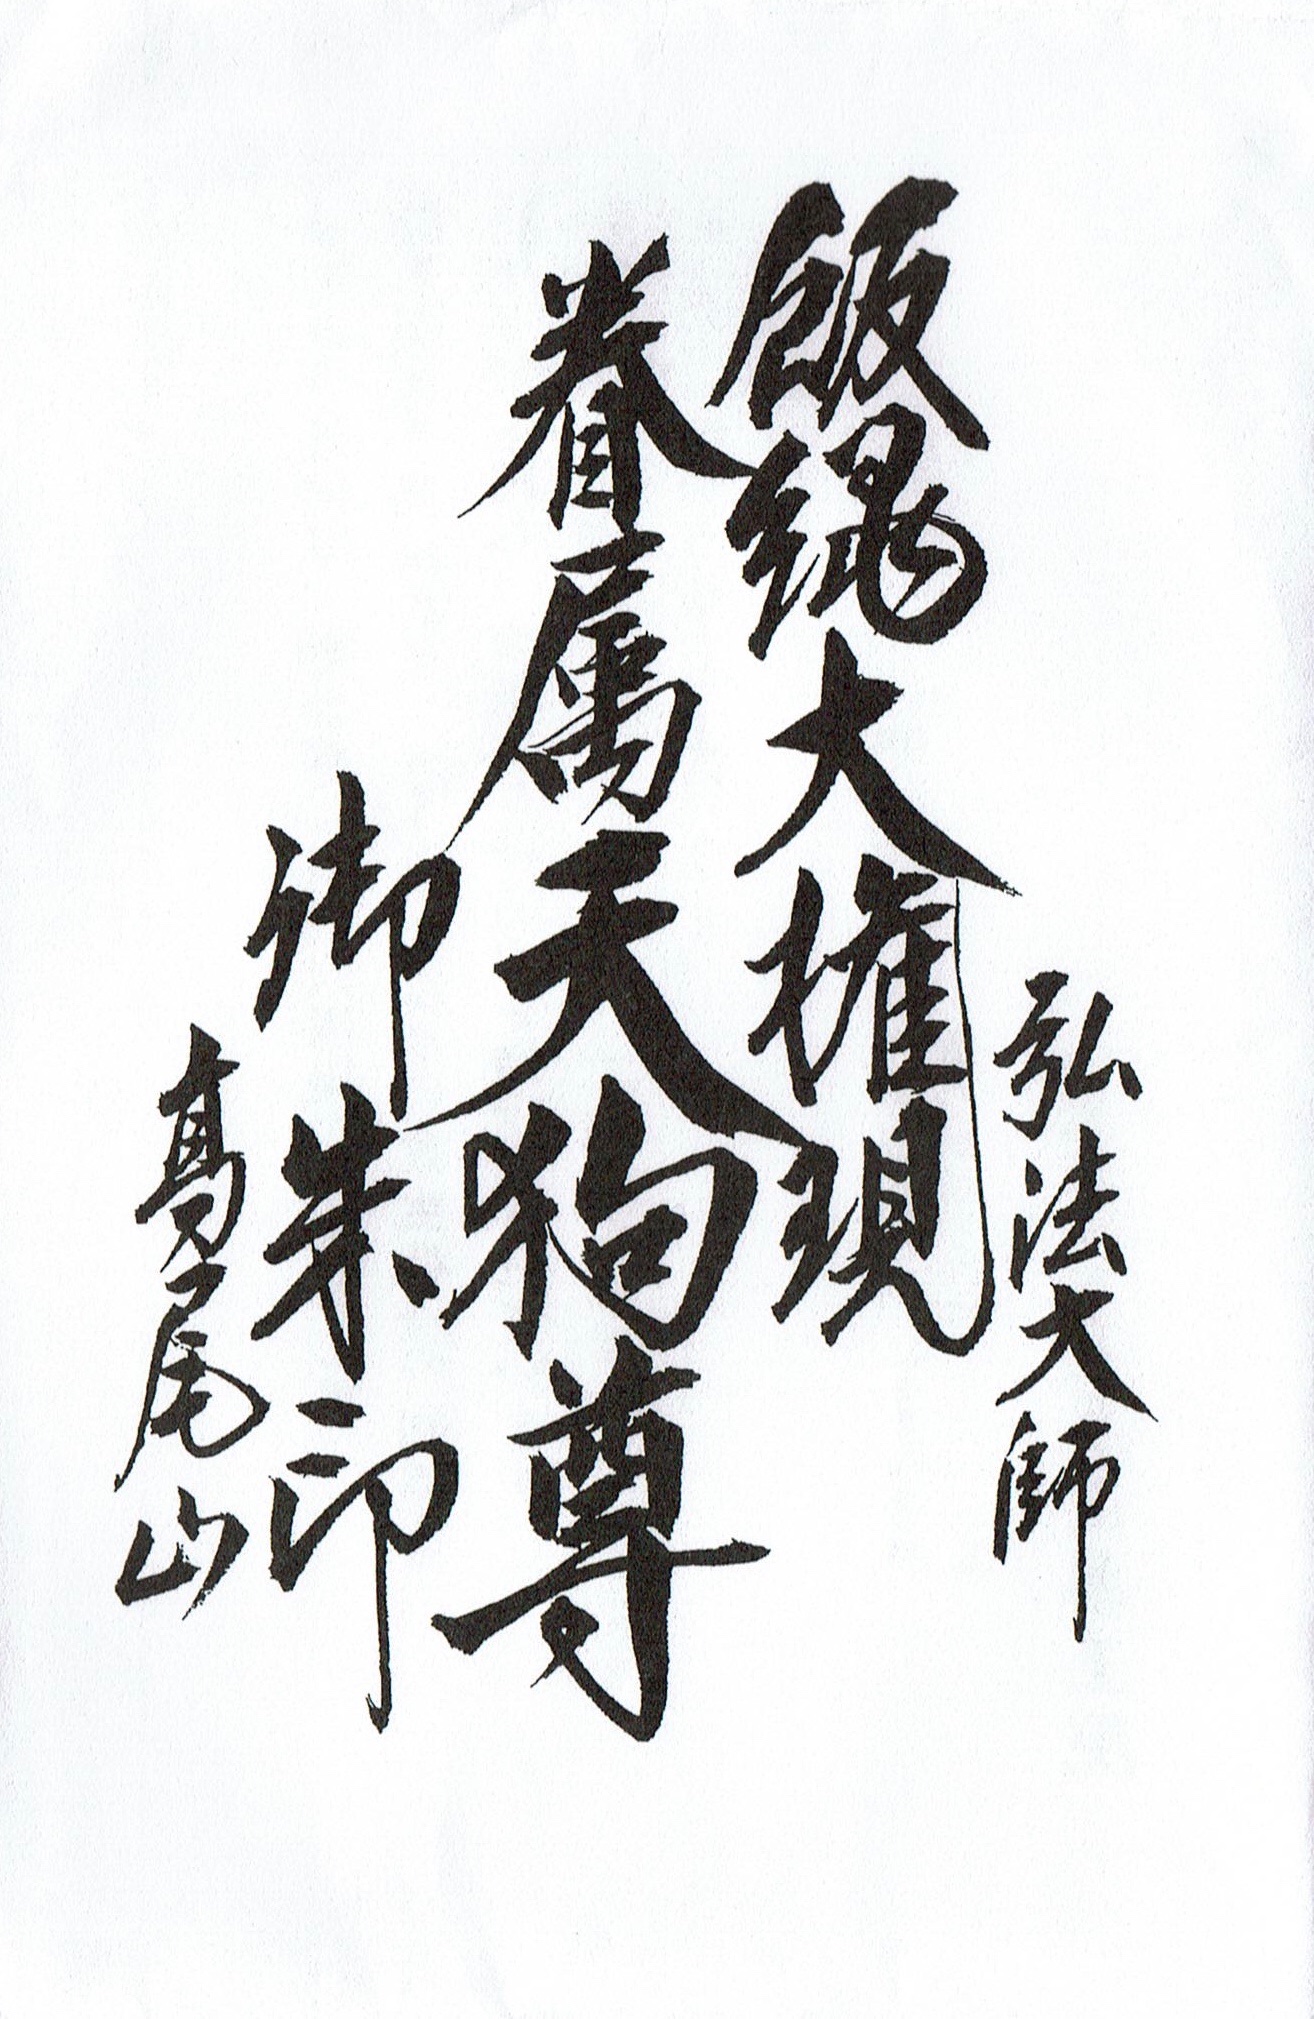 弘法大師
飯縄大権現
眷属天狗尊
御朱印
高尾山